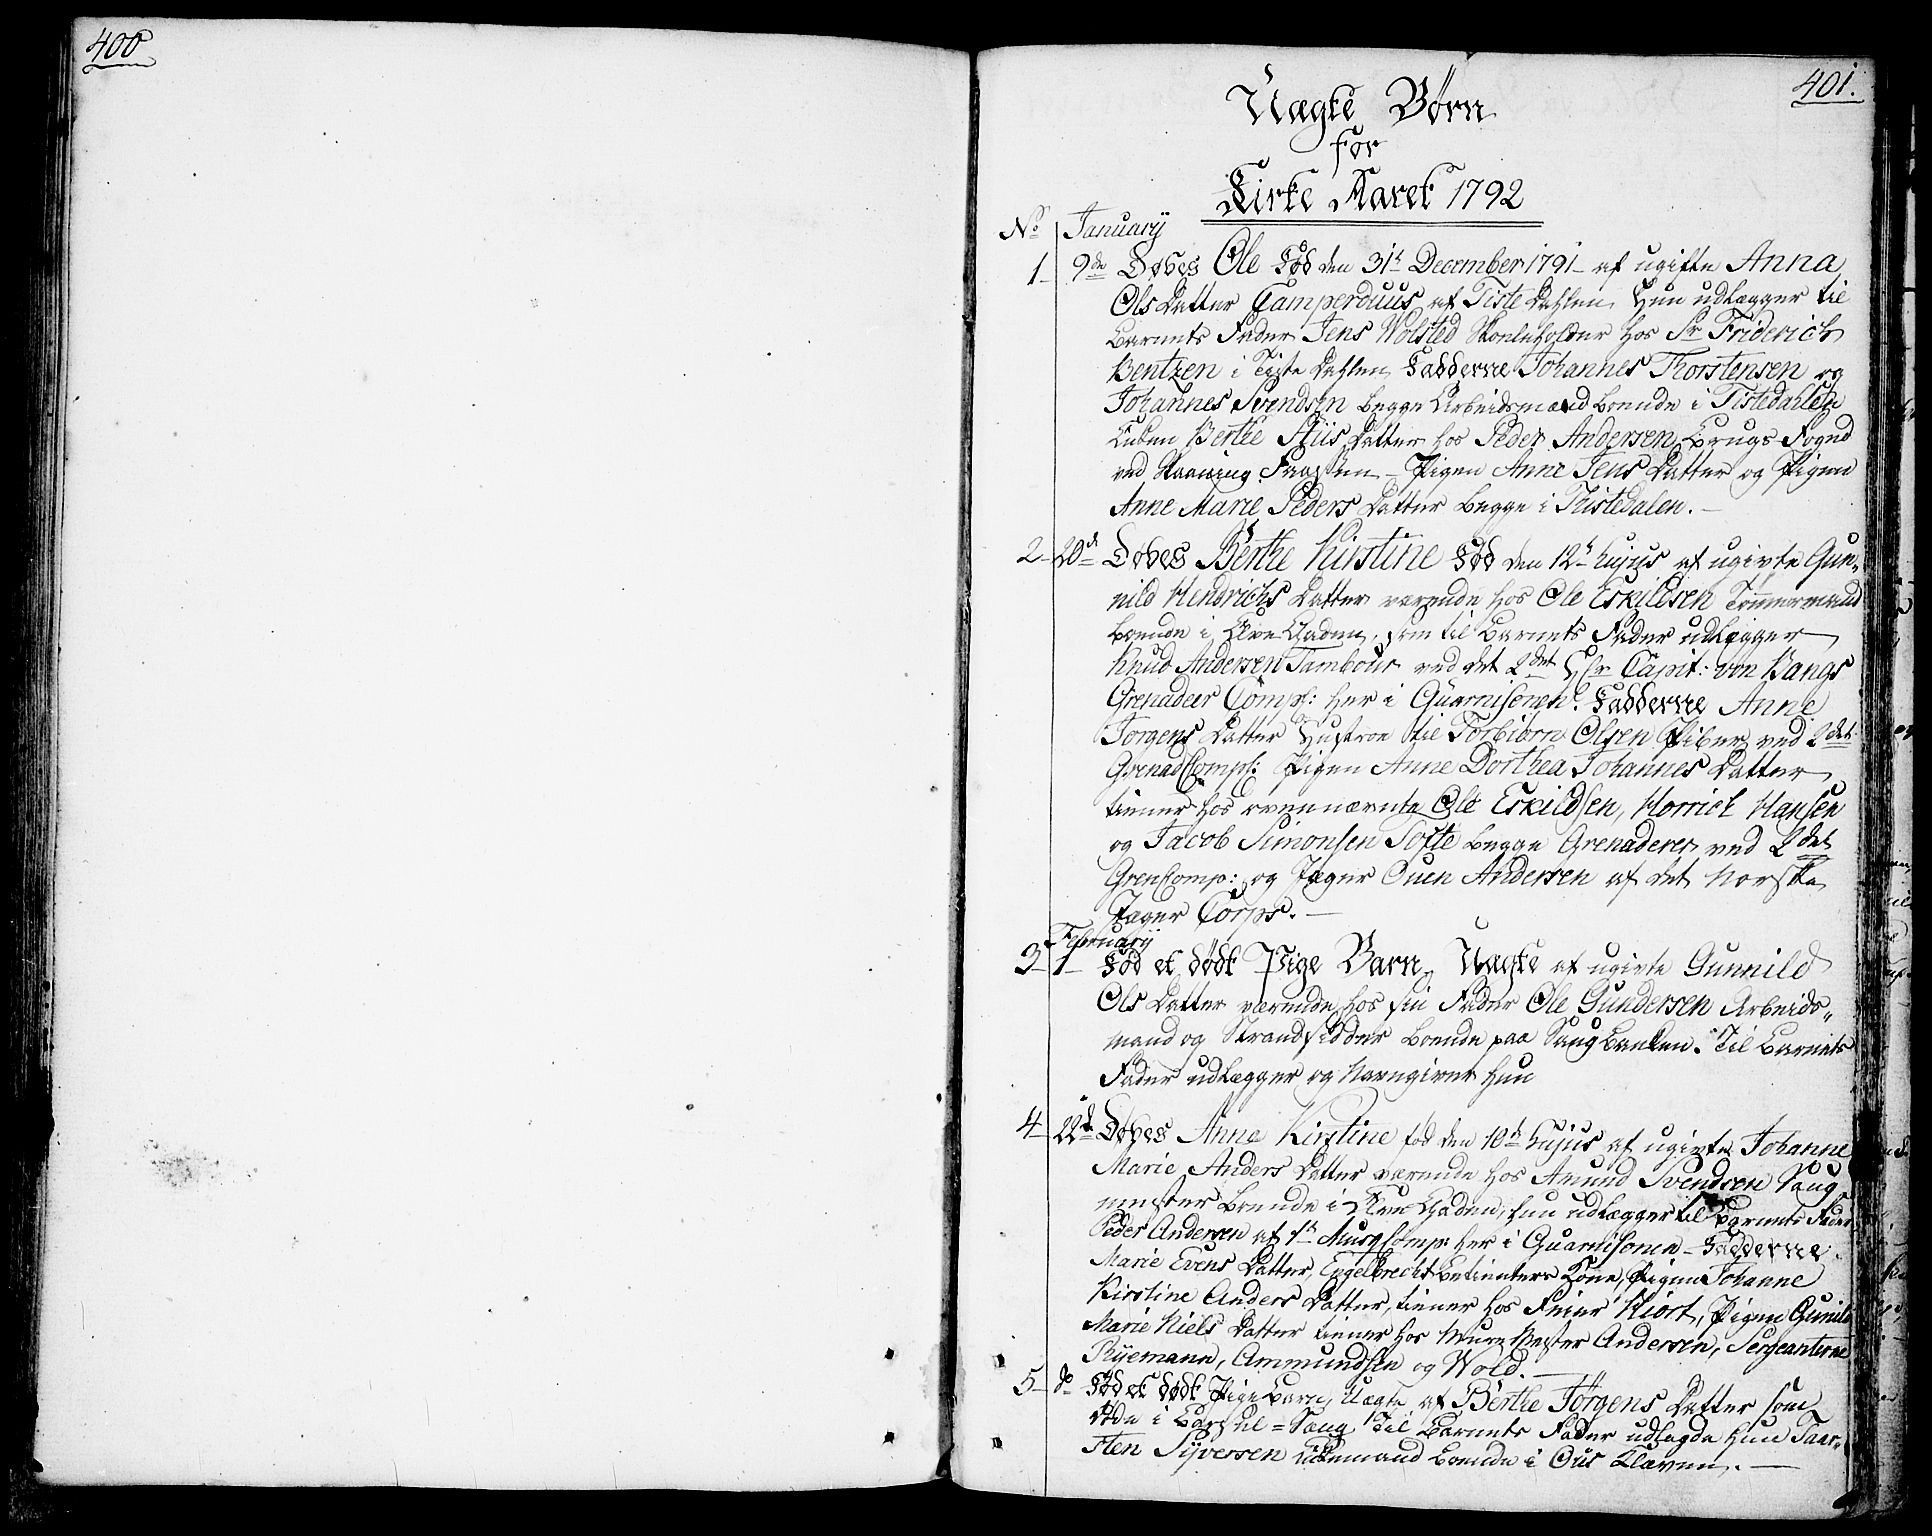 400
401.
Uægte Børn
for
Kirke Aaret 1792
No January
1 9de Døbes Ole Fød den 31t December 1791 af ugifte Anna
Ols Datter Camperduus af Tiste Dahlen, Hun udlægger til
Barnets Fader Jens Wolsted Skoleholder hos Sr Friderich
Bentzen i Tiste Dahlen Fadderne Johannes Thorstensen og
Johannes Svendsen begge Arbeidsmænd boende i Tistedahlen
Enken Berthe Stiis Datter hos Peder Andersen Brugs Foged
ved Skaaning Fossen – Pigen Anne Jens Datter og Pigen
Anne Marie Peders Datter begge i Thistedalen. –
2 20d Døbes Berthe Kirstine Fød den 12t hujus af ugivte Gun„
nild Hendrichs Datter værende hos Ole Eskildsen Tømmermand
boende i Elve Gaden, som til Barnets Fader udlægger
Knud Andersen Tambour ved det 2det Hr Capit: von Bangs
Grenadeer Comp: her i Guarnisonen. Fadderne Anne
Jorgens Datter Hustroe til Torbiørn Olsen Piber ved 2det
Grenad Comp: Pigen Anne Dorthea Johannes Datter
tiener hos ovennævnte Ole Eskildsen, Horrich Hansen
og Jacob Simonsen Tofte begge Grenaderer ved 2det
Gren Comp: og Jæger Ouen Andersen af det Norske
Jæger Corps. –
February
3 1 Fød et dødt Pige Barn, Uægte af ugivte Gunnild
Ols Datter værende hos sin Fader Ole Gundersen Arbeids„
mand og Strandsidder boende paa Saugbanken. Til Barnets
Fader udlægger og Navngiver Hun
4 22d Døbes Anne Kirstine fød den 10d hujus af ugivte Johanne
Marie Anders Datter værende hos Amund Svendsen Saug
mester boende i Elve Gaden, hun udlægger til Barnets Fader
Peder Andersen af 1t Musq Comp: her i Guarnisonen – Fadderne
Marie Evens Datter, Engelbrecht Betienters Kone, Pigen Johanne
Kirstine Anders Datter, tiener hos Feier Hiort, Pigen Gunild
Marie Niels Datter tiener hos Muur Mester Andersen, Sergeanterne
Ryemann, Ammundsen og Wold. –
5 do Fød et dødt Pige Barn, Uægte af Berthe Jørgens Datter som
døde i Barsel=Seng Til Barnets Fader udlagde hun Taar„
sten Syversen Enkemand boende i Ous Kleven. –